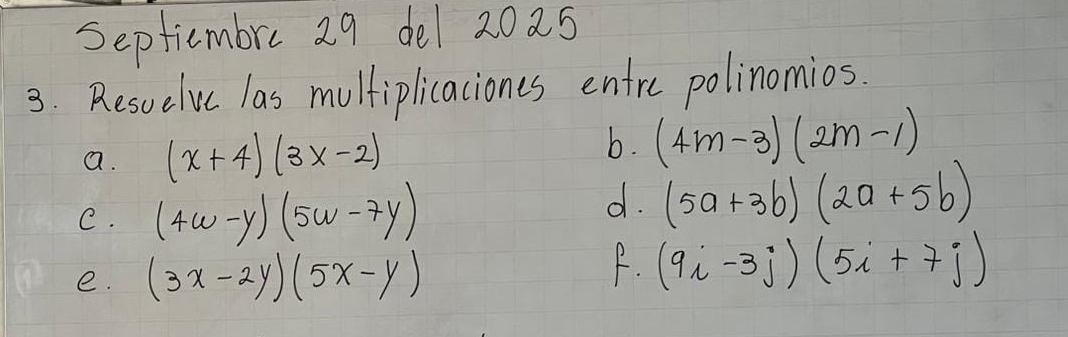 Septiembre 29 del 2025
3. Resuelve las multiplicaciones entre polinomios.
a. (x+4)(3x-2) b. (4m-3)(2m-1)
c. (4w-y)(5w-7y) d. (5a+3b)(2a+5b)
e. (3x-2y)(5x-y) f. (9i-3j)(5i+7j)